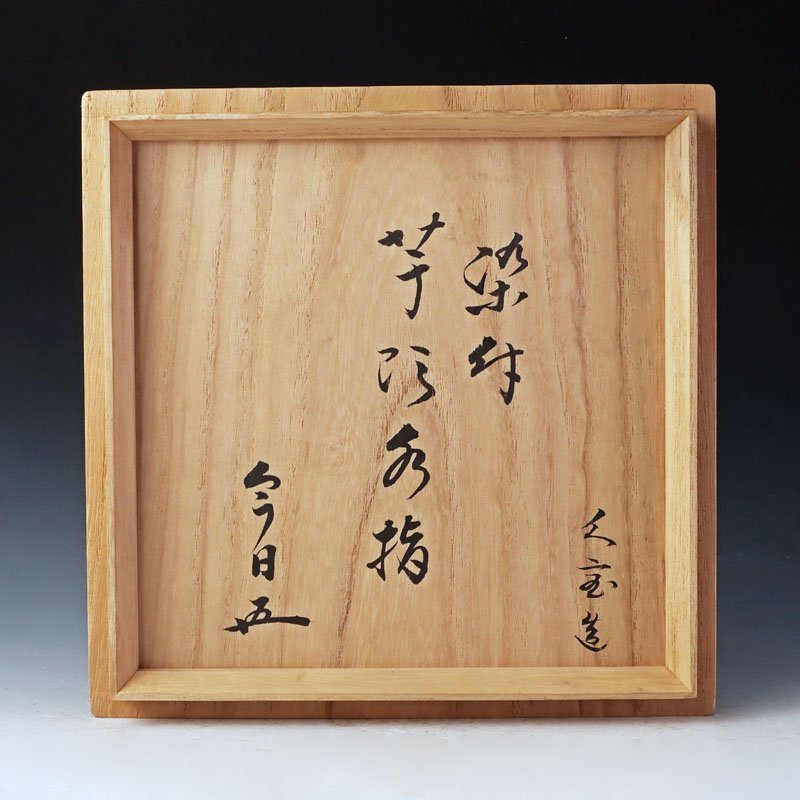 久宝造
染付
芋頭水指
今日